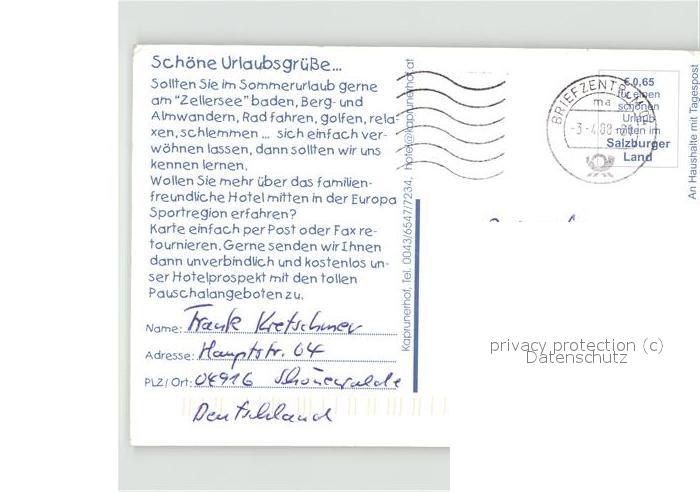 Schöne Urlaubsgrüße...
Sollten Sie im Sommerurlaub gerne
am "Zellersee" baden, Berg- und
Almwandern, Rad fahren, golfen, rela-
xen, schlemmen ... sich einfach ver-
wöhnen lassen, dann sollten wir uns
kennen lernen.
Wollen Sie mehr über das familien-
freundliche Hotel mitten in der Europa
Sportregion erfahren?
Karte einfach per Post oder Fax re-
tournieren. Gerne senden wir Ihnen
dann unverbindlich und kostenlos un-
ser Hotelprospekt mit den tollen
Pauschalangeboten zu.
Name: Frank Kretschmer
Adresse: Hauptstr. 64
PLZ/Ort: 04916 Schönewalde
Deutschland
Kaprunerhof, Tel. 0043/6547/7234, hotel@kaprunerhof.at
BRIEFZENTRUM
ma
-3.-4.08
€ 0,65
für einen
schönen
Urlaub
mitten im
Salzburger
Land
An Haushalte mit Tagespost
privacy protection (c)
Datenschutz